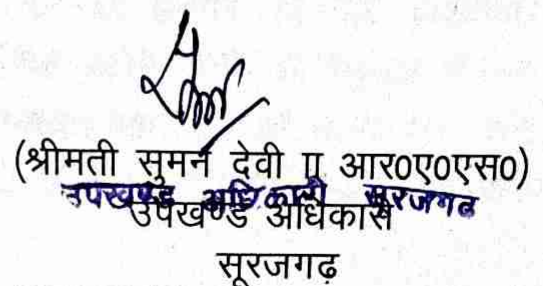 (श्रीमती सुमन देवी प्र आर0ए0एस0)
उपखण्ड अधिकारी सूरजगढ
उपखण्ड अधिकारी
सूरजगढ़